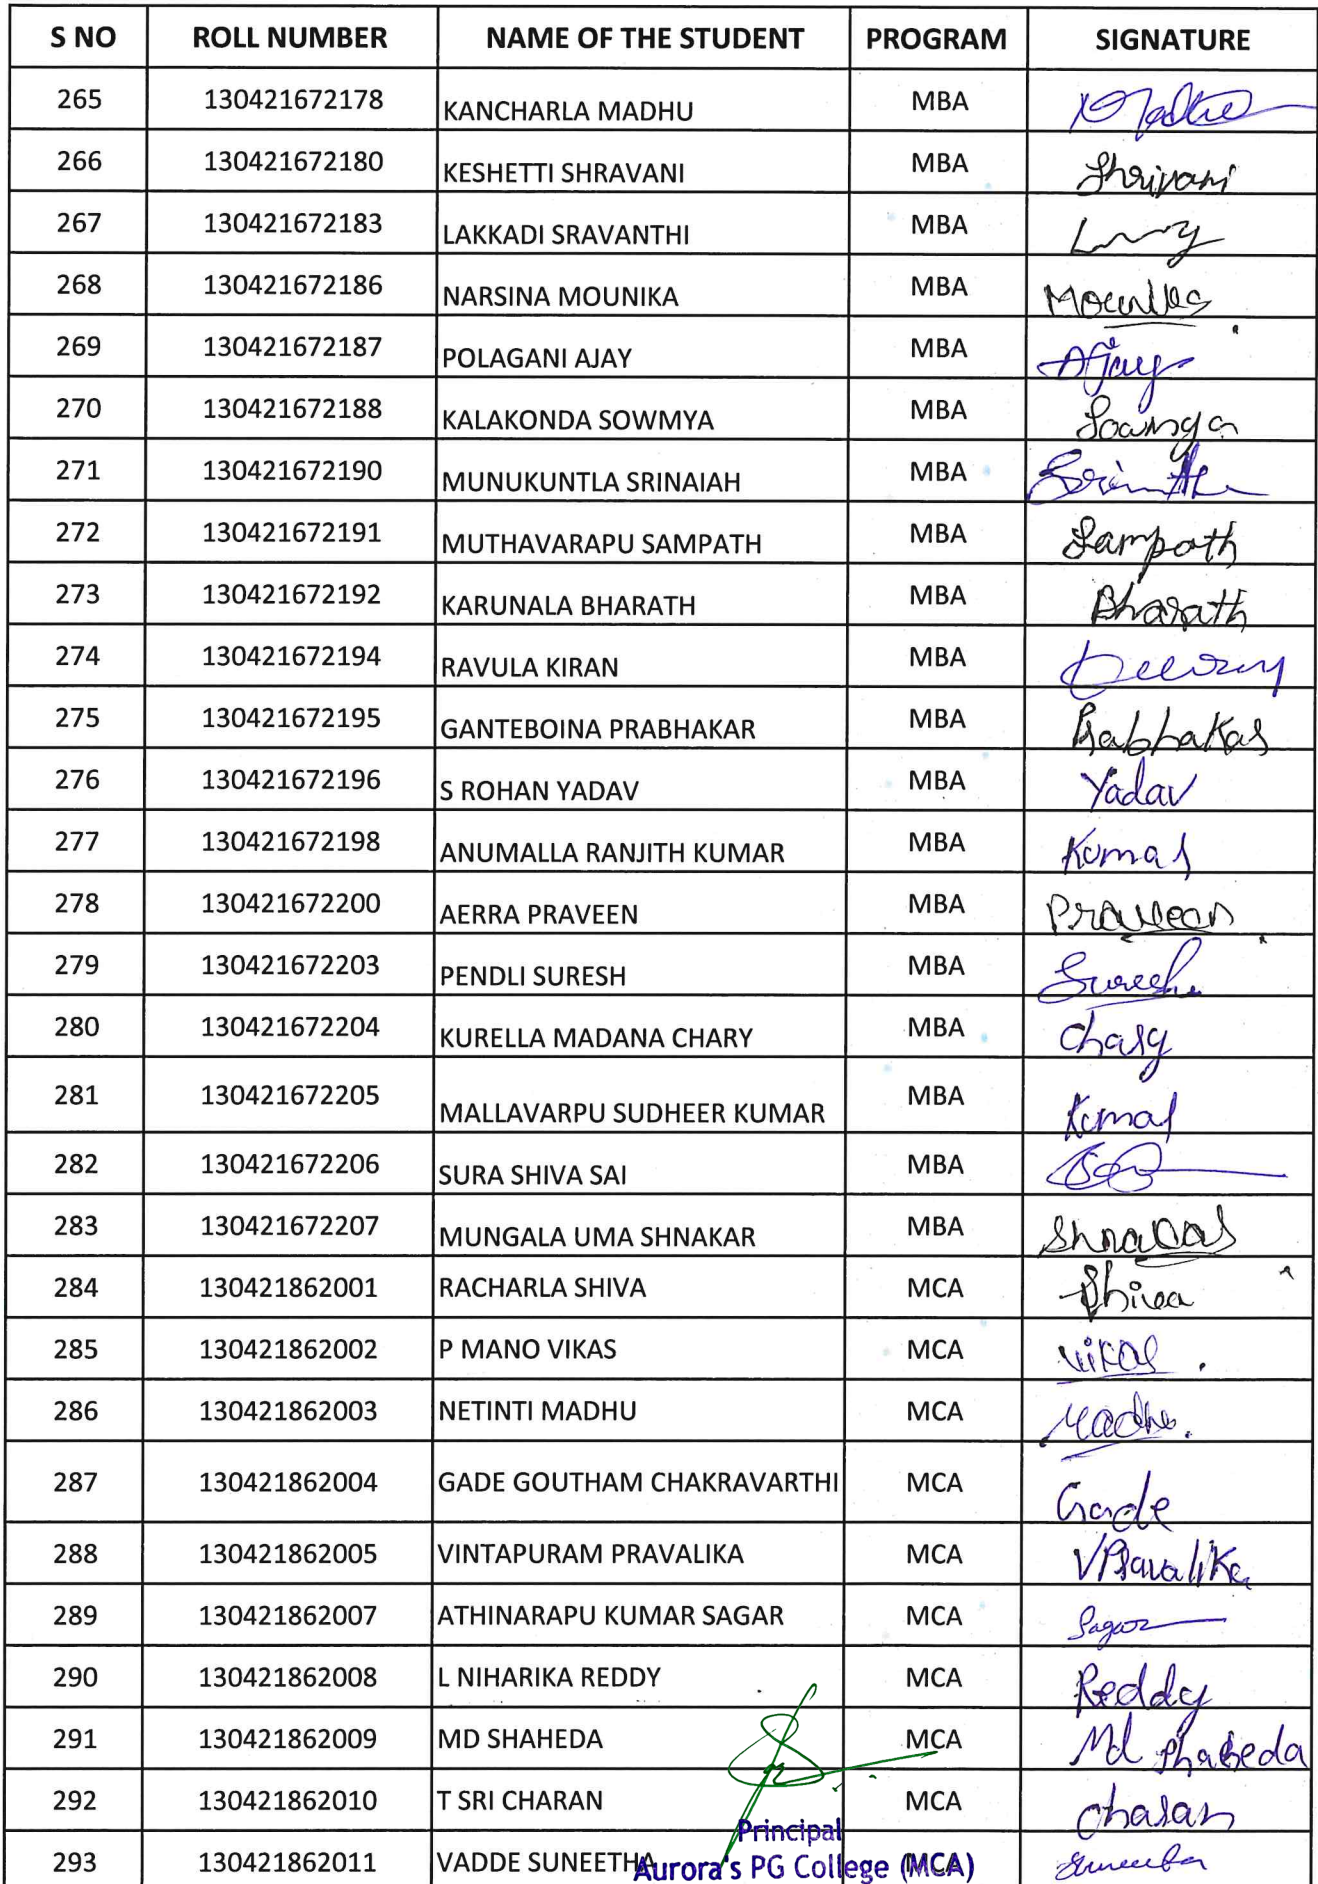 S NO ROLL NUMBER NAME OF THE STUDENT PROGRAM SIGNATURE
265 130421672178 KANCHARLA MADHU MBA
266 130421672180 KESHETTI SHRAVANI MBA Shrivani
267 130421672183 LAKKADI SRAVANTHI MBA
268 130421672186 NARSINA MOUNIKA MBA
269 130421672187 POLAGANI AJAY MBA Ajay
270 130421672188 KALAKONDA SOWMYA MBA
271 130421672190 MUNUKUNTLA SRINAIAH MBA
272 130421672191 MUTHAVARAPU SAMPATH MBA Sampath
273 130421672192 KARUNALA BHARATH MBA Bharath
274 130421672194 RAVULA KIRAN MBA
275 130421672195 GANTEBOINA PRABHAKAR MBA Prabhakar
276 130421672196 S ROHAN YADAV MBA Yadav
277 130421672198 ANUMALLA RANJITH KUMAR MBA Kumar
278 130421672200 AERRA PRAVEEN MBA Praveen
279 130421672203 PENDLI SURESH MBA Suresh
280 130421672204 KURELLA MADANA CHARY MBA Chary
281 130421672205 MALLAVARPU SUDHEER KUMAR MBA Kumar
282 130421672206 SURA SHIVA SAI MBA
283 130421672207 MUNGALA UMA SHNAKAR MBA Shnakar
284 130421862001 RACHARLA SHIVA MCA Shiva
285 130421862002 P MANO VIKAS MCA vikas
286 130421862003 NETINTI MADHU MCA Madhu.
287 130421862004 GADE GOUTHAM CHAKRAVARTHI MCA Gade
288 130421862005 VINTAPURAM PRAVALIKA MCA V Pravalika
289 130421862007 ATHINARAPU KUMAR SAGAR MCA Sagar
290 130421862008 L NIHARIKA REDDY MCA Reddy
291 130421862009 MD SHAHEDA MCA Md Shaheda
292 130421862010 T SRI CHARAN MCA Charan
Principal
293 130421862011 VADDE SUNEETHA MCA Suneetha
Aurora's PG College (MCA)